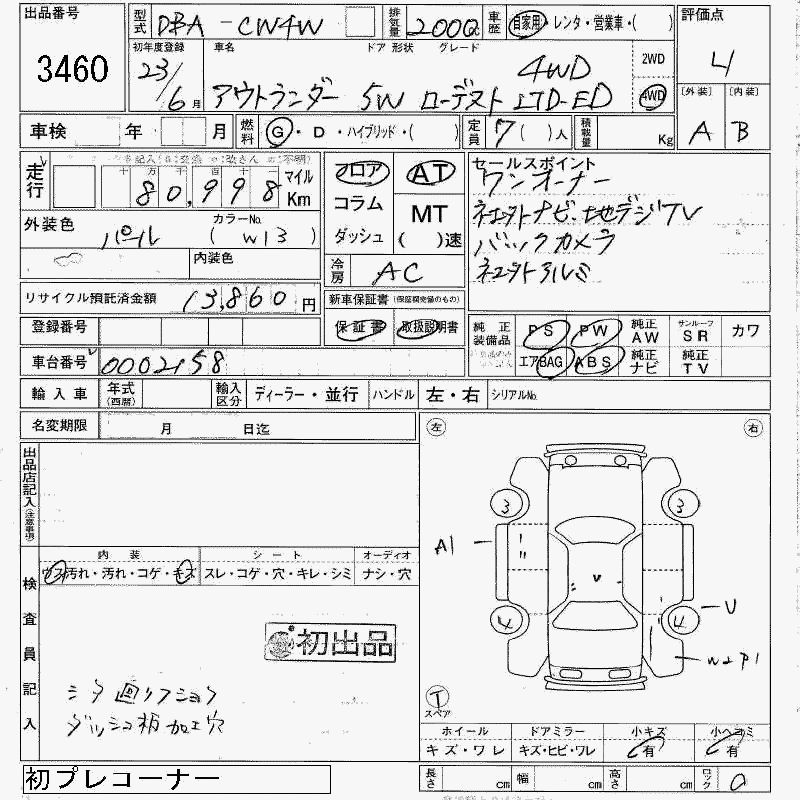 出品番号 3460
型式 DBA-CW4W 排気量 2000cc 車歴 自家用・レンタ・営業車・( ) 評価点 4
初年度登録 23/6月 車名 ドア 形状 グレード 4WD 2WD 4WD
アウトランダー 5W ローデスト LTD-ED
[外装] A [内装] B
車検 年 月 燃料 G・D・ハイブリッド・( ) 定員 7( )人 積載量 Kg
走行 十 万 千 百 十 一 80,998 マイル Km
フロア コラム ダッシュ
AT MT ( )速
セールスポイント
ワンオーナー
ナビ・地デジTV
バックカメラ
アルミ
外装色 パール カラーNo. (W13)
内装色
冷房 AC
リサイクル預託済金額 13,860円
新車保証書(保証継続優のもの)
保証書 取扱説明書
登録番号
車台番号 0002158
純正装備品 PS PW 純正AW サンルーフSR カワ
エアBAG ABS 純正ナビ 純正TV
輸入車 年式(西暦) 輸入区分 ディーラー・並行 ハンドル 左・右 シリアルNo.
名変期限 月 日迄
左 右
出品店記入(注意事項)
検査員記入
内装 シート オーディオ
ウス汚れ・汚れ・コゲ・キズ スレ・コゲ・穴・キレ・シミ ナシ・穴
3 3
A1
V
4 4
V
W2P1
初出品
ダッシュ 加工穴
T
スペア
ホイール ドアミラー 小キズ 小ヘコミ
キズ・ワレ キズ・ヒビ・ワレ 有 有
初プレコーナー
長さ cm 幅 cm 高さ cm ロック 0